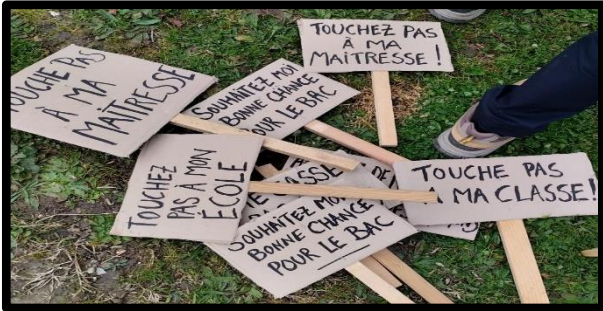 TOUCHEZ PAS
À MA
MAÎTRESSE !
TOUCHE PAS
À MA
MAÎTRESSE
SOUHAITEZ MOI
BONNE CHANCE
POUR LE BAC
TOUCHEZ
PAS À MON
ÉCOLE
TOUCHE PAS
MA CLASSE!
DE
CLASSE
SOUHAITEZ MOI
BONNE CHANCE
POUR LE BAC